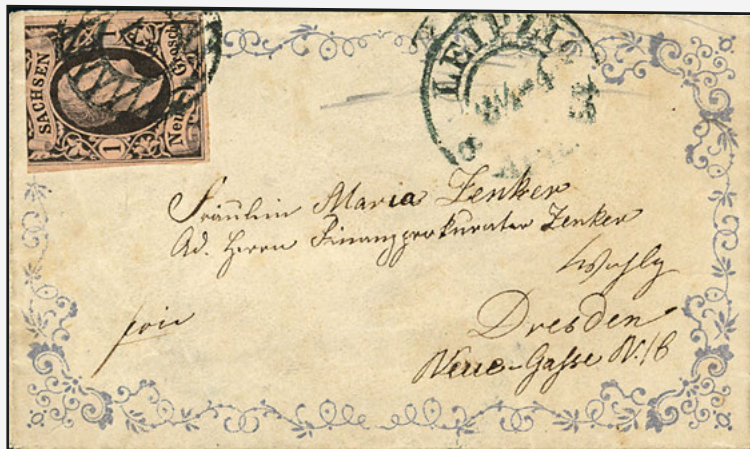 SACHSEN
1
Neu Grosch
1
LEIPZIG
Fräulein Maria Zenker
Ad. Herrn Finanzprokurator Zenker
Dresden
Neue-Gasse N.